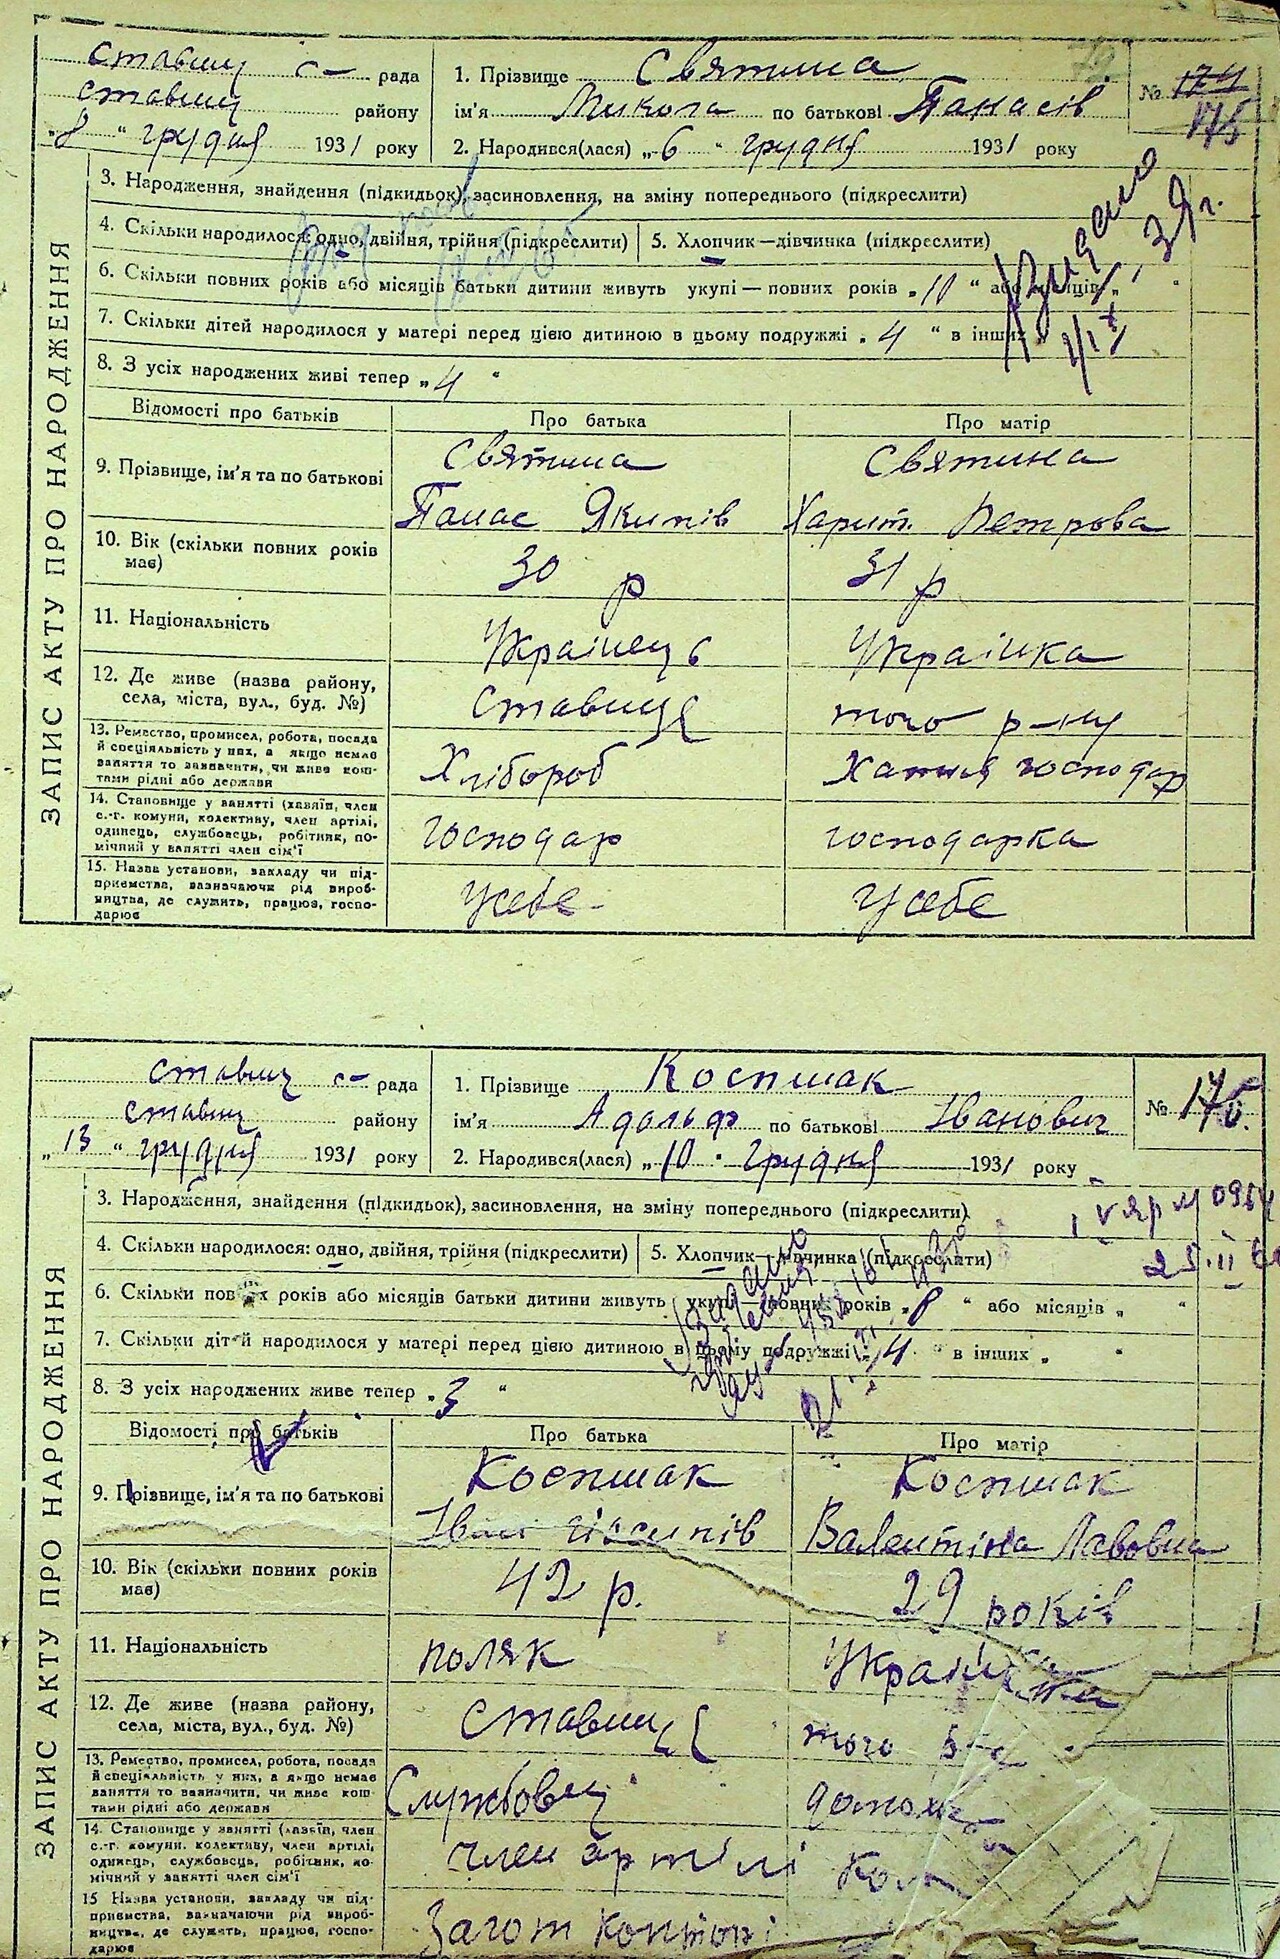 ЗАПИС АКТУ ПРО НАРОДЖЕННЯ
ставищ с- рада
ставищ району
"8" грудня 1931 року
1. Прізвище Святина
ім'я Микола по батькові Панасів
2. Народився(лася) "6" грудня 1931 року
№ 174
175
3. Народження, знайдення (підкидьок), засиновлення, на зміну попереднього (підкреслити)
4. Скільки народилося: одно, двійня, трійня (підкреслити) 5. Хлопчик—дівчинка (підкреслити)
6. Скільки повних років або місяців батьки дитини живуть укупі—повних років "10" або місяців " "
7. Скільки дітей народилося у матері перед цією дитиною в цьому подружжі "4" в інших
8. З усіх народжених живі тепер "4"
Видано
39 г.
Відомості про батьків Про батька Про матір
9. Прізвище, ім'я та по батькові Святина Святина
Панас Якимів Харит. Петрова
10. Вік (скільки повних років має) 30 р 31 р
11. Національність Українець Українка
12. Де живе (назва району, села, міста, вул., буд. №) Ставищі того р-ну
13. Ремество, промисел, робота, посада й спеціяльність у них, а якщо немає заняття то зазначити, чи живе коштами рідні або держави Хлібороб Хатня господар
14. Становище у занятті (хазяїн, член с.-г. комуни, колективу, член артілі, одинець, службовець, робітник, помічний у занятті член сім'ї господар господарка
15. Назва установи, закладу чи підприємства, зазначаючи рід виробництва, де служить, працює, господарює У себе У себе
ЗАПИС АКТУ ПРО НАРОДЖЕННЯ
ставищ с- рада
ставищ району
"13" грудня 1931 року
1. Прізвище Коспшак
ім'я Адольф по батькові Іванович
2. Народився(лася) "10" грудня 1931 року
№ 176.
3. Народження, знайдення (підкидьок), засиновлення, на зміну попереднього (підкреслити)
4. Скільки народилося: одно, двійня, трійня (підкреслити) 5. Хлопчик—дівчинка (підкреслити)
6. Скільки повних років або місяців батьки дитини живуть укупі—повних років "8" або місяців " "
7. Скільки дітей народилося у матері перед цією дитиною в цьому подружжі "4" в інших " "
8. З усіх народжених живе тепер "3"
25.II
Відомості про батьків Про батька Про матір
9. Прізвище, ім'я та по батькові Коспшак Коспшак
Іван Йосипів Валентіна Лавовна
10. Вік (скільки повних років має) 42 р. 29 років
11. Національність поляк Українка
12. Де живе (назва району, села, міста, вул., буд. №) Ставищі того
13. Ремество, промисел, робота, посада й спеціяльність у них, а якщо немає заняття то зазначити, чи живе коштами рідні або держави Службовец
14. Становище у занятті (хазяїн, член с.-г. комуни, колективу, член артілі, одинець, службовець, робітник, помічний у занятті член сім'ї член артілі
15 Назва установи, закладу чи підприємства, зазначаючи рід виробництва, де служить, працює, господарює Загот конторі